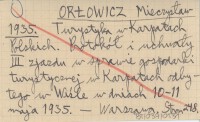 ORŁOWICZ Mieczysław
1935. Turystyka w Karpatach
Polskich. Protokół i uchwały
III zjazdu w sprawie gospodarki
turystycznej w Karpatach odby-
tego w Wiśle w dniach 10-11
maja 1935. — Warszawa, Str. 48.